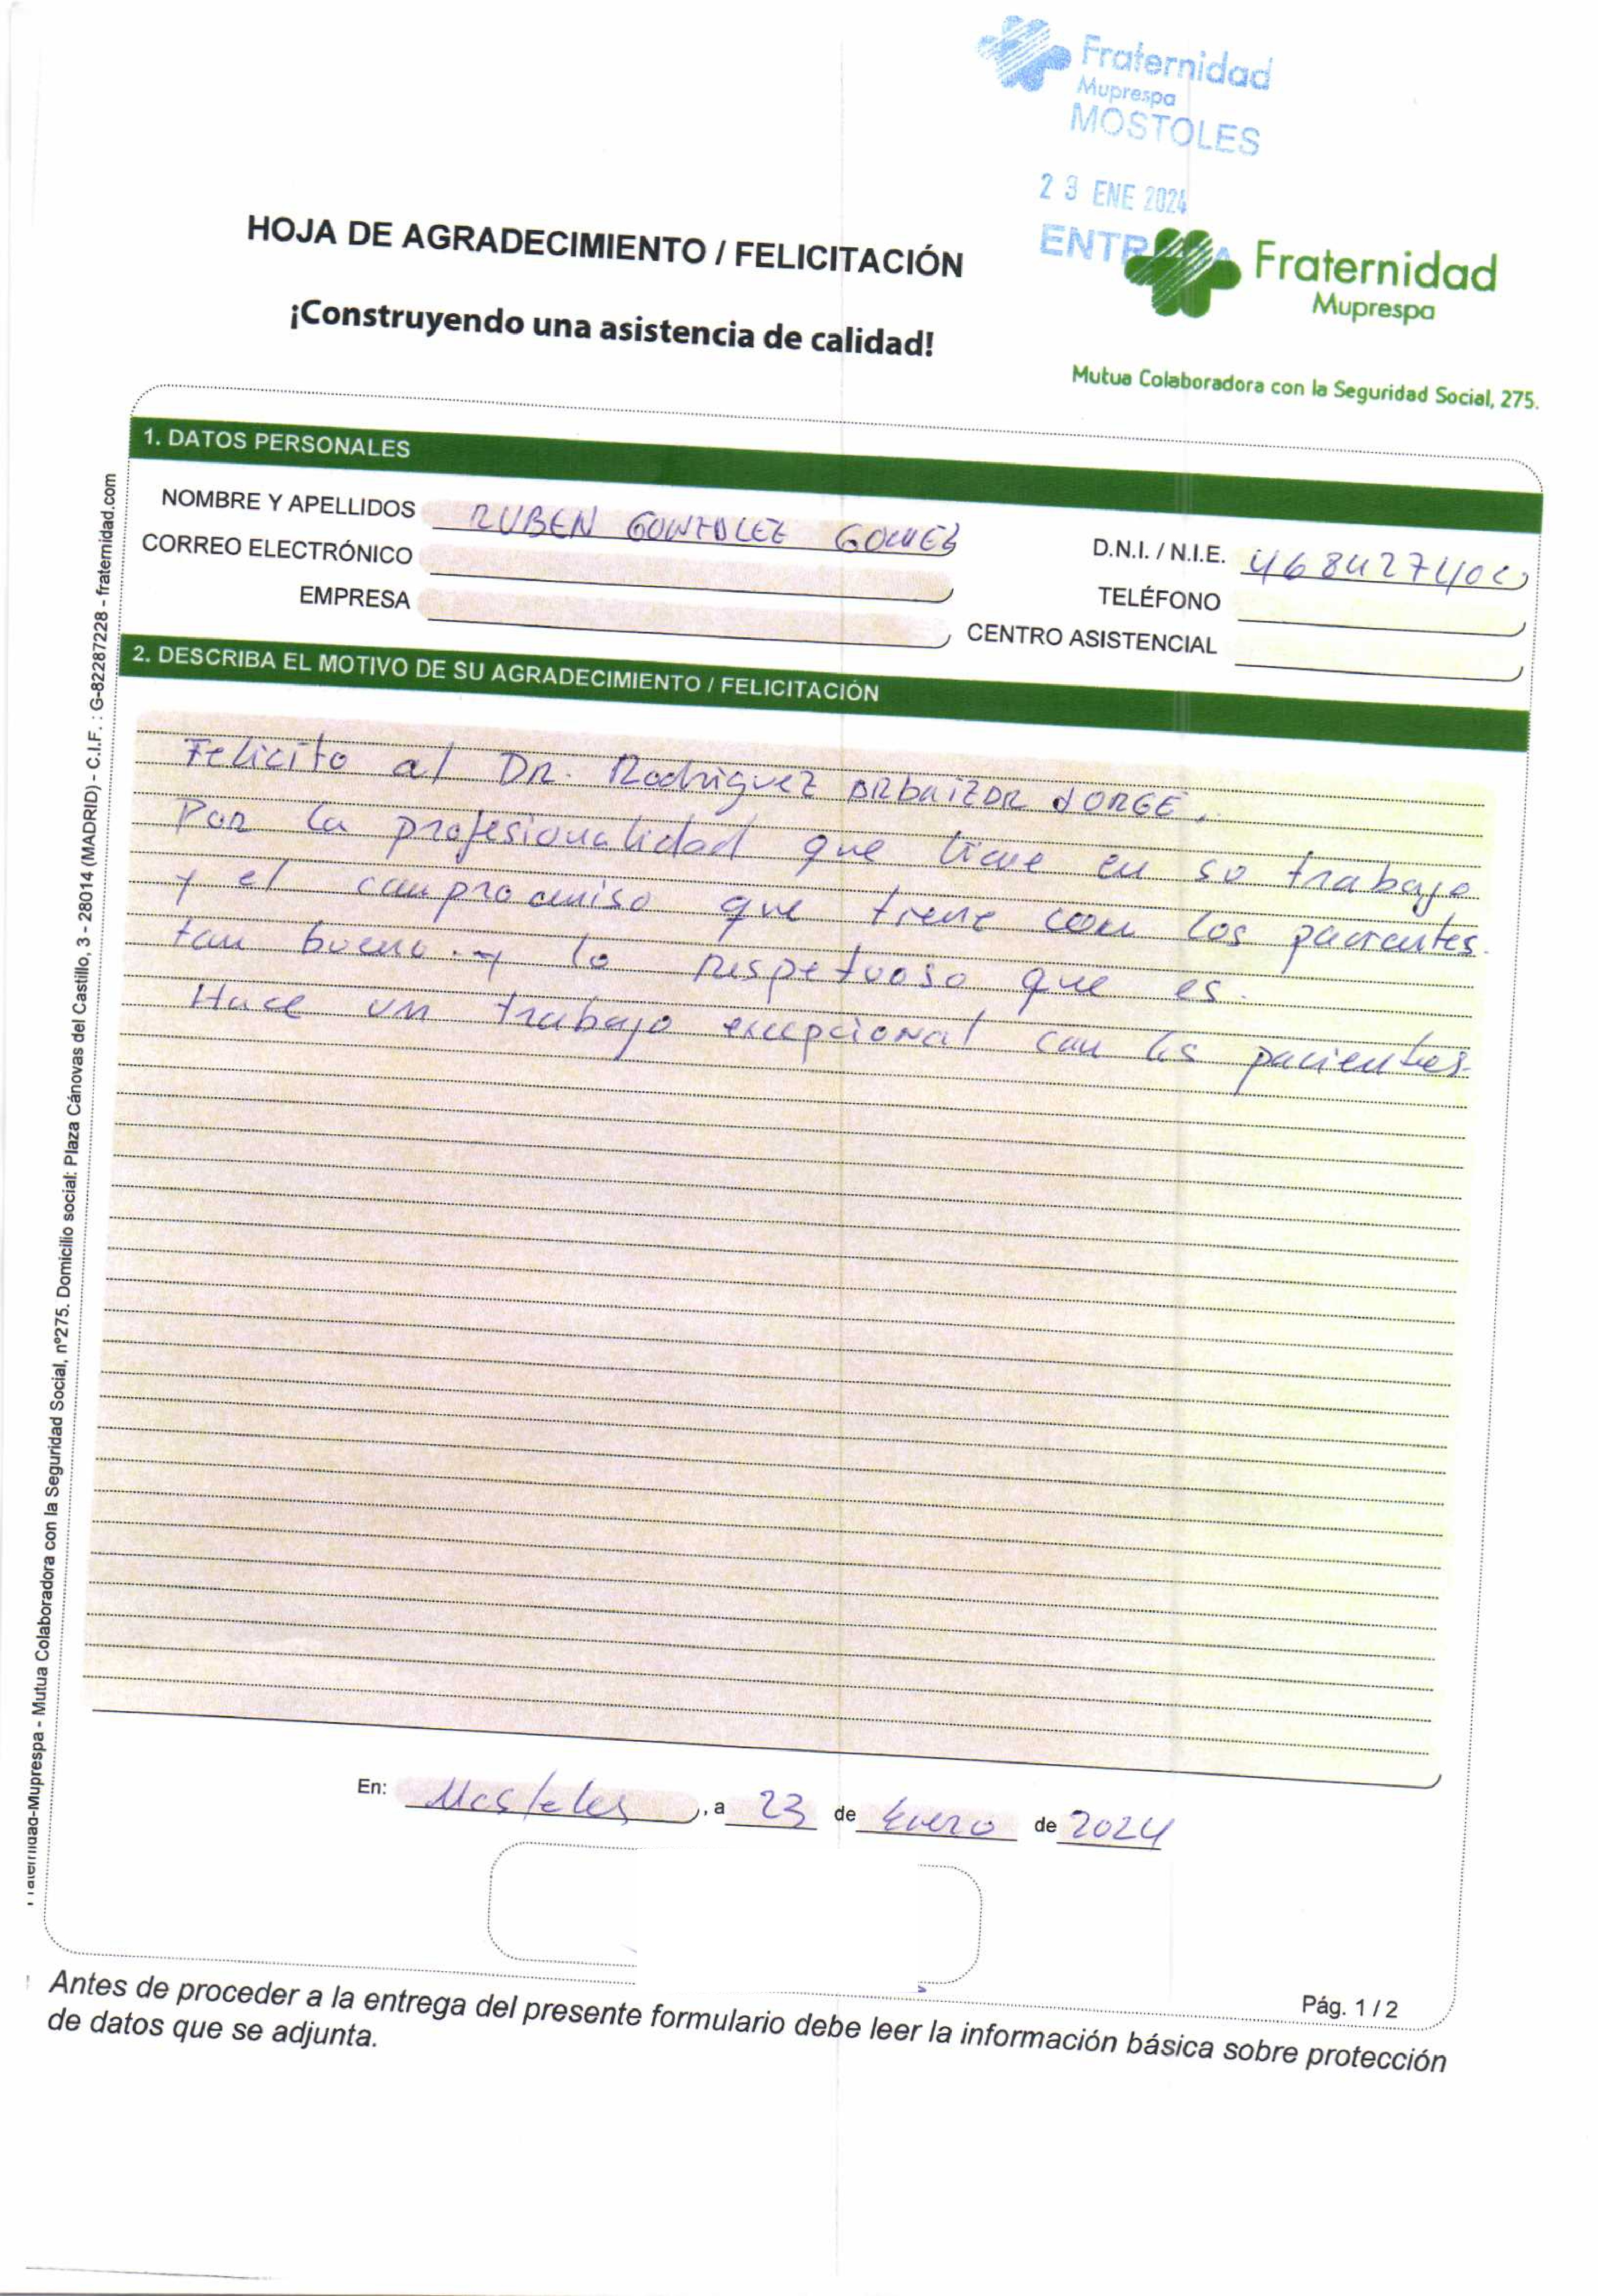 Fraternidad
Muprespa
MOSTOLES
23 ENE 2024
HOJA DE AGRADECIMIENTO / FELICITACIÓN
¡Construyendo una asistencia de calidad!
Fraternidad
Muprespa
Mutua Colaboradora con la Seguridad Social, 275.
1. DATOS PERSONALES
NOMBRE Y APELLIDOS RUBEN GONZALEZ GOMEZ
D.N.I. / N.I.E.
CORREO ELECTRÓNICO
TELÉFONO
EMPRESA
CENTRO ASISTENCIAL
2. DESCRIBA EL MOTIVO DE SU AGRADECIMIENTO / FELICITACIÓN
Felicito al DR. Rodriguez JORGE.
Por la profesionalidad que tiene en su trabajo
y el compromiso que tiene con los pacientes.
tan bueno. y lo respetuoso que es.
Hace un trabajo excepcional con los pacientes.
En: Mostoles, a 23 de Enero de 2024
Pág. 1 / 2
Antes de proceder a la entrega del presente formulario debe leer la información básica sobre protección
de datos que se adjunta.
Fraternidad-Muprespa - Mutua Colaboradora con la Seguridad Social, nº275. Domicilio social: Plaza Cánovas del Castillo, 3 - 28014 (MADRID) - C.I.F. : G-82287228 - fraternidad.com